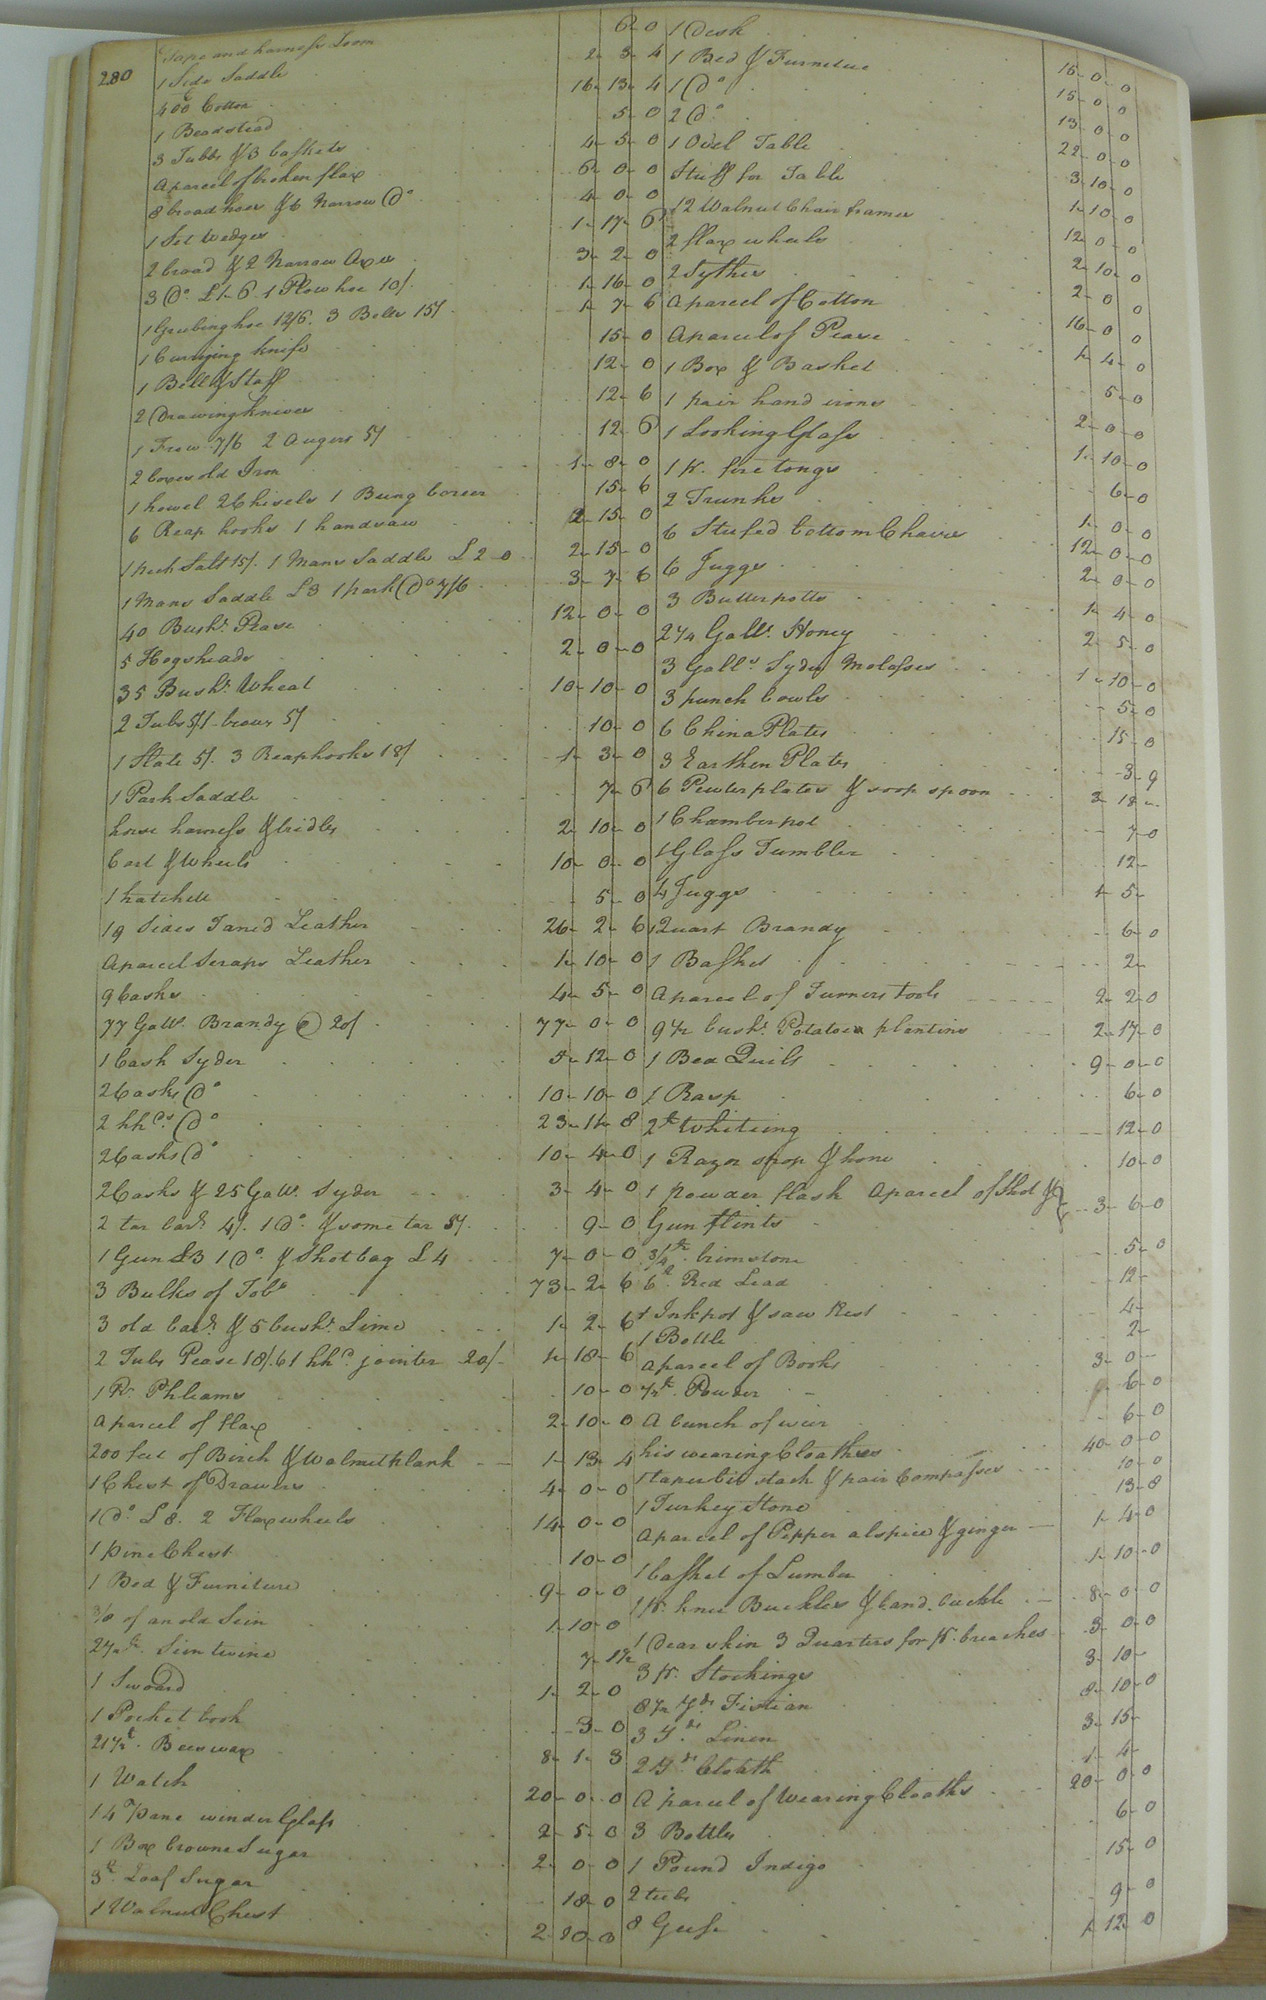 280
Tape and harness Loom 6-0
1 Side Saddle 2-3-4
400 Cotton 16-13-4
1 Beadstead 5-0
3 Tubbs & 3 baskets 4-5-0
A parcel of broken flax 6-0-0
8 broad hoes & 6 Narrow Do 4-0-0
1 Set Wedges 1-17-6
2 broad & 2 Narrow Axes 3-2-0
3 Do £1-6 1 Plow hoe 10/ 1-16-0
1 Grubing hoe 12/6. 3 Bells 15/ 1-7-6
1 Currying knife 15-0
1 Bell & Staff 12-0
2 Drawing knives 12-6
1 Frow 7/6 2 Augers 5/ 12-6
2 boxes old Iron 1-8-0
1 howel 2 Chisels 1 Bung borer 15-6
6 Reap hooks 1 handsaw 2-15-0
1 peck Salt 15/. 1 Mans Saddle £2-0 2-15-0
1 Mans Saddle £3 1 park Do 7/6 3-7-6
40 Bushs Pease 12-0-0
5 Hogsheads 2-0-0
35 Bushs Wheat 10-10-0
2 Tubs 5/ 1 brow 5/ 10-0
1 Slate 5/. 3 Reaphooks 18/ 1-3-0
1 Park Saddle 7-6
horse harness & bridles 2-10-0
Cart & Wheels 10-0-0
1 hatchell 5-0
19 Sides Taned Leather 26-2-6
A parcel Scraps Leather 1-10-0
9 Casks 4-5-0
77 Galls. Brandy @ 20/ 77-0-0
1 Cask Syder 5-12-0
2 Casks Do 10-10-0
2 hhds Do 23-14-8
2 Casks Do 10-4-0
2 Casks & 25 Galls. Syder 3-4-0
2 tar bars. 4/. 1 Do. & some tar 5/. 9-0
1 Gun £3 1 Do. & Shot bag £4 7-0-0
3 Bulks of Tobo 73-2-6
3 old bars. & 5 bushs. Lime 1-2-6
2 Tubs Pease 18/6 1 hhd. jointer 20/- 1-18-6
1 Pr. Phleams 10-0
A parcel of flax 2-10-0
200 feet of Birch & Walnut plank 1-13-4
1 Chest of Drawers 4-0-0
1 Do. £8. 2 Flax wheels 14-0-0
1 pine Chest 10-0
1 Bed & Furniture 9-0-0
of an old Sein 1-10-0
Sein twine 7-1½
1 Swoard 1-2-0
1 Pocket book 3-0
21½ lb. Bees wax 8-1-3
1 Watch 20-0-0
14 Pane winder Glass 2-5-0
1 Box browne Sugar 2-0-0
3 lb. Loaf Sugar 18-0
1 Walnut Chest 2-10-0
1 Desk 15-0-0
1 Bed & Furniture 15-0-0
1 Do 13-0-0
2 Do. 22-0-0
1 Ovel Table 3-10-0
Stuff for Table 1-10-0
12 Walnut Chair frames 12-0-0
2 flax wheels 2-10-0
2 Sythes 2-0-0
A parcel of Cotton 16-0-0
A parcel of Pease 1-4-0
1 Box & Basket 5-0
1 pair hand irons 2-0-0
1 Looking Glass 1-10-0
1 Pr. fire tongs 6-0
2 Trunks 1-0-0
6 Stufed bottom Chairs 12-0-0
6 Juggs 2-0-0
3 Butterpotts 1-4-0
2¼ Galls. Honey 2-5-0
3 Galls. Syder Molasses 1-10-0
3 punch bowls 5-0
6 China Plates 15-0
3 Earthen Plates 3-9
6 Pewter plates & soop spoon 3-18-
1 Chamberpot 7-0
1 Glass Tumbler 12-
4 Juggs 1-5-
1 Quart Brandy 6-0
1 Basket 2-
A parcel of Turners tools 2-2-0
9½ bushs. Potatoes plantins 2-17-0
1 Bed Quilt 9-0-0
1 Rasp 6-0
2 lb Whiteing 12-0
1 Razor strop & hone 10-0
1 powder flask A parcel of Shot &
Gun flints 3-6-0
3/4 lb. brimstone 5-0
6 lb. Red Lead 12-
1 Inkpot & saw Rest 4-
1 Bottle 2-
A parcel of Books 3-0-
½ lb. Powder 6-0
A bunch of wier 6-0
his wearing Cloathes 40-0-0
1 taper bit stock & pair Compasses 10-0
1 Turkey Stone 13-8
A parcel of Pepper alspice & ginger 1-4-0
1 basket of Lumber 1-10-0
1 Pr. knee Buckles & band buckle 8-0-0
1 Dear skin 3 Quarters for Pr. breaches 3-0-0
3 Pr. Stockings 3-10-
8½ Yds. Fistian 8-10-0
3 Yds. Linen 3-15-
2 Yds. Cloath 1-4-
A parcel of Wearing Cloaths 20-0-0
3 Bottles 6-0
1 Pound Indigo 15-0
2 tubs 9-0
8 Geese 1-12-0